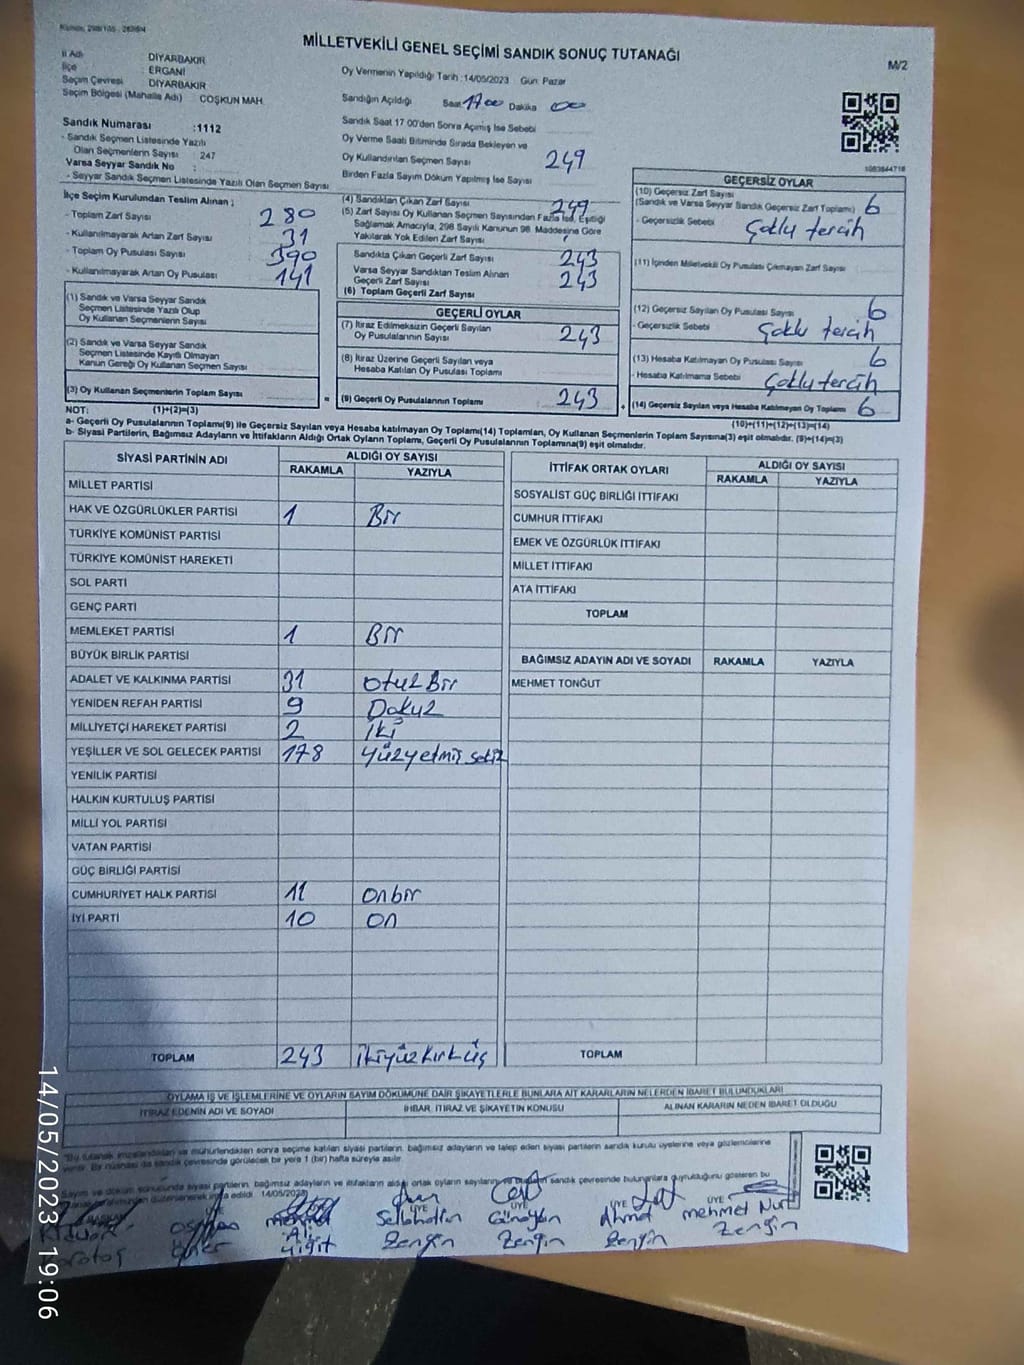 MİLLETVEKİLİ GENEL SEÇİMİ SANDIK SONUÇ TUTANAĞI
M/2
İl Adı : DİYARBAKIR
İlçe : ERGANİ
Seçim Çevresi : DİYARBAKIR
Seçim Bölgesi (Mahalle Adı) : COŞKUN MAH.
Oy Vermenin Yapıldığı Tarih :14/05/2023 Gün: Pazar
Sandığın Açıldığı Saat 17 00 Dakika 00
Sandık Saat 17 00'den Sonra Açılmış İse Sebebi
Sandık Numarası :1112
- Sandık Seçmen Listesinde Yazılı
Olan Seçmenlerin Sayısı : 247
Varsa Seyyar Sandık No :
- Seyyar Sandık Seçmen Listesinde Yazılı Olan Seçmen Sayısı
Oy Verme Saati Bitiminde Sırada Bekleyen ve
Oy Kullandırılan Seçmen Sayısı 249
Birden Fazla Sayım Döküm Yapılmış İse Sayısı
1083844718
İlçe Seçim Kurulundan Teslim Alınan ;
- Toplam Zarf Sayısı 280
- Kullanılmayarak Artan Zarf Sayısı 31
- Toplam Oy Pusulası Sayısı 390
- Kullanılmayarak Artan Oy Pusulası 141
(1) Sandık ve Varsa Seyyar Sandık
Seçmen Listesinde Yazılı Olup
Oy Kullanan Seçmenlerin Sayısı
(2) Sandık ve Varsa Seyyar Sandık
Seçmen Listesinde Kayıtlı Olmayan
Kanun Gereği Oy Kullanan Seçmen Sayısı
(3) Oy Kullanan Seçmenlerin Toplam Sayısı =
(4) Sandıktan Çıkan Zarf Sayısı 249
(5) Zarf Sayısı Oy Kullanan Seçmen Sayısından Fazla İse, Eşitliği
Sağlamak Amacıyla, 298 Sayılı Kanunun 98. Maddesine Göre
Yakılarak Yok Edilen Zarf Sayısı
Sandıkta Çıkan Geçerli Zarf Sayısı 243
Varsa Seyyar Sandıktan Teslim Alınan
Geçerli Zarf Sayısı 243
(6) Toplam Geçerli Zarf Sayısı
GEÇERLİ OYLAR
(7) İtiraz Edilmeksizin Geçerli Sayılan
Oy Pusulalarının Sayısı 243
(8) İtiraz Üzerine Geçerli Sayılan veya
Hesaba Katılan Oy Pusulası Toplamı
(9) Geçerli Oy Pusulalarının Toplamı 243 +
GEÇERSİZ OYLAR
(10) Geçersiz Zarf Sayısı
(Sandık ve Varsa Seyyar Sandık Geçersiz Zarf Toplamı) 6
- Geçersizlik Sebebi Çoklu tercih
(11) İçinden Milletvekili Oy Pusulası Çıkmayan Zarf Sayısı
(12) Geçersiz Sayılan Oy Pusulası Sayısı 6
- Geçersizlik Sebebi Çoklu tercih
(13) Hesaba Katılmayan Oy Pusulası Sayısı 6
- Hesaba Katılmama Sebebi Çoklu tercih
(14) Geçersiz Sayılan veya Hesaba Katılmayan Oy Toplamı 6
NOT: (1)+(2)=(3) (10)+(11)+(12)+(13)=(14)
a- Geçerli Oy Pusulalarının Toplamı(9) ile Geçersiz Sayılan veya Hesaba katılmayan Oy Toplamı(14) Toplamları, Oy Kullanan Seçmenlerin Toplam Sayısına(3) eşit olmalıdır. (9)+(14)=(3)
b- Siyasi Partilerin, Bağımsız Adayların ve İttifakların Aldığı Ortak Oyların Toplamı, Geçerli Oy Pusulalarının Toplamına(9) eşit olmalıdır.
SİYASİ PARTİNİN ADI ALDIĞI OY SAYISI
RAKAMLA YAZIYLA
MİLLET PARTİSİ
HAK VE ÖZGÜRLÜKLER PARTİSİ 1 Bir
TÜRKİYE KOMÜNİST PARTİSİ
TÜRKİYE KOMÜNİST HAREKETİ
SOL PARTİ
GENÇ PARTİ
MEMLEKET PARTİSİ 1 Bir
BÜYÜK BİRLİK PARTİSİ
ADALET VE KALKINMA PARTİSİ 31 otuz Bir
YENİDEN REFAH PARTİSİ 9 Dokuz
MİLLİYETÇİ HAREKET PARTİSİ 2 İki
YEŞİLLER VE SOL GELECEK PARTİSİ 178 yüzyetmiş sekiz
YENİLİK PARTİSİ
HALKIN KURTULUŞ PARTİSİ
MİLLİ YOL PARTİSİ
VATAN PARTİSİ
GÜÇ BİRLİĞİ PARTİSİ
CUMHURİYET HALK PARTİSİ 11 onbir
İYİ PARTİ 10 on
TOPLAM 243 ikiyüz kırk üç
İTTİFAK ORTAK OYLARI ALDIĞI OY SAYISI
RAKAMLA YAZIYLA
SOSYALİST GÜÇ BİRLİĞİ İTTİFAKI
CUMHUR İTTİFAKI
EMEK VE ÖZGÜRLÜK İTTİFAKI
MİLLET İTTİFAKI
ATA İTTİFAKI
TOPLAM
BAĞIMSIZ ADAYIN ADI VE SOYADI RAKAMLA YAZIYLA
MEHMET TONĞUT
TOPLAM
OYLAMA İŞ VE İŞLEMLERİNE VE OYLARIN SAYIM DÖKÜMÜNE DAİR ŞİKAYETLERLE BUNLARA AİT KARARLARIN NELERDEN İBARET BULUNDUKLARI
İTİRAZ EDENİN ADI VE SOYADI İHBAR, İTİRAZ VE ŞİKAYETİN KONUSU ALINAN KARARIN NEDEN İBARET OLDUĞU
*Bu tutanak imzalandıktan ve mühürlendikten sonra seçime katılan siyasi partilerin, bağımsız adayların ve talep eden siyasi partilerin sandık kurulu üyelerine veya gözlemcilerine
verilir. Bir nüshası da sandık çevresinde görülecek bir yere 1 (bir) hafta süreyle asılır.
ÜYE ÜYE ÜYE ÜYE
Mehmet Ali Yiğit
Selahattin Zengin
Günaydın Zengin
Ahmet Zengin
mehmet Nuri Zengin
14/05/2023 19:06